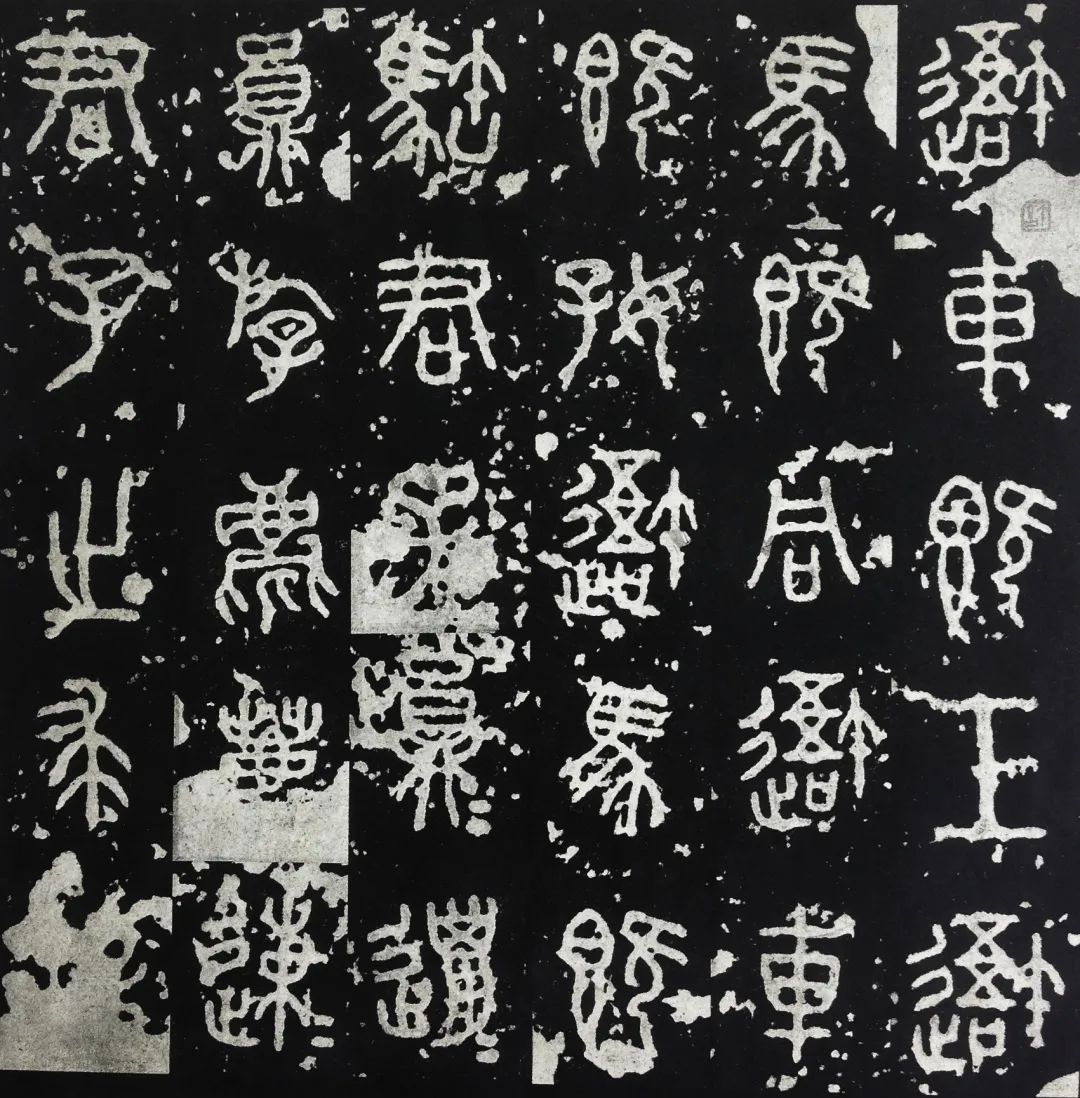 䢩車既工䢩
馬既同䢩車
既好䢩馬既
𩣡君子員邋
員斿麀鹿速
君子之求